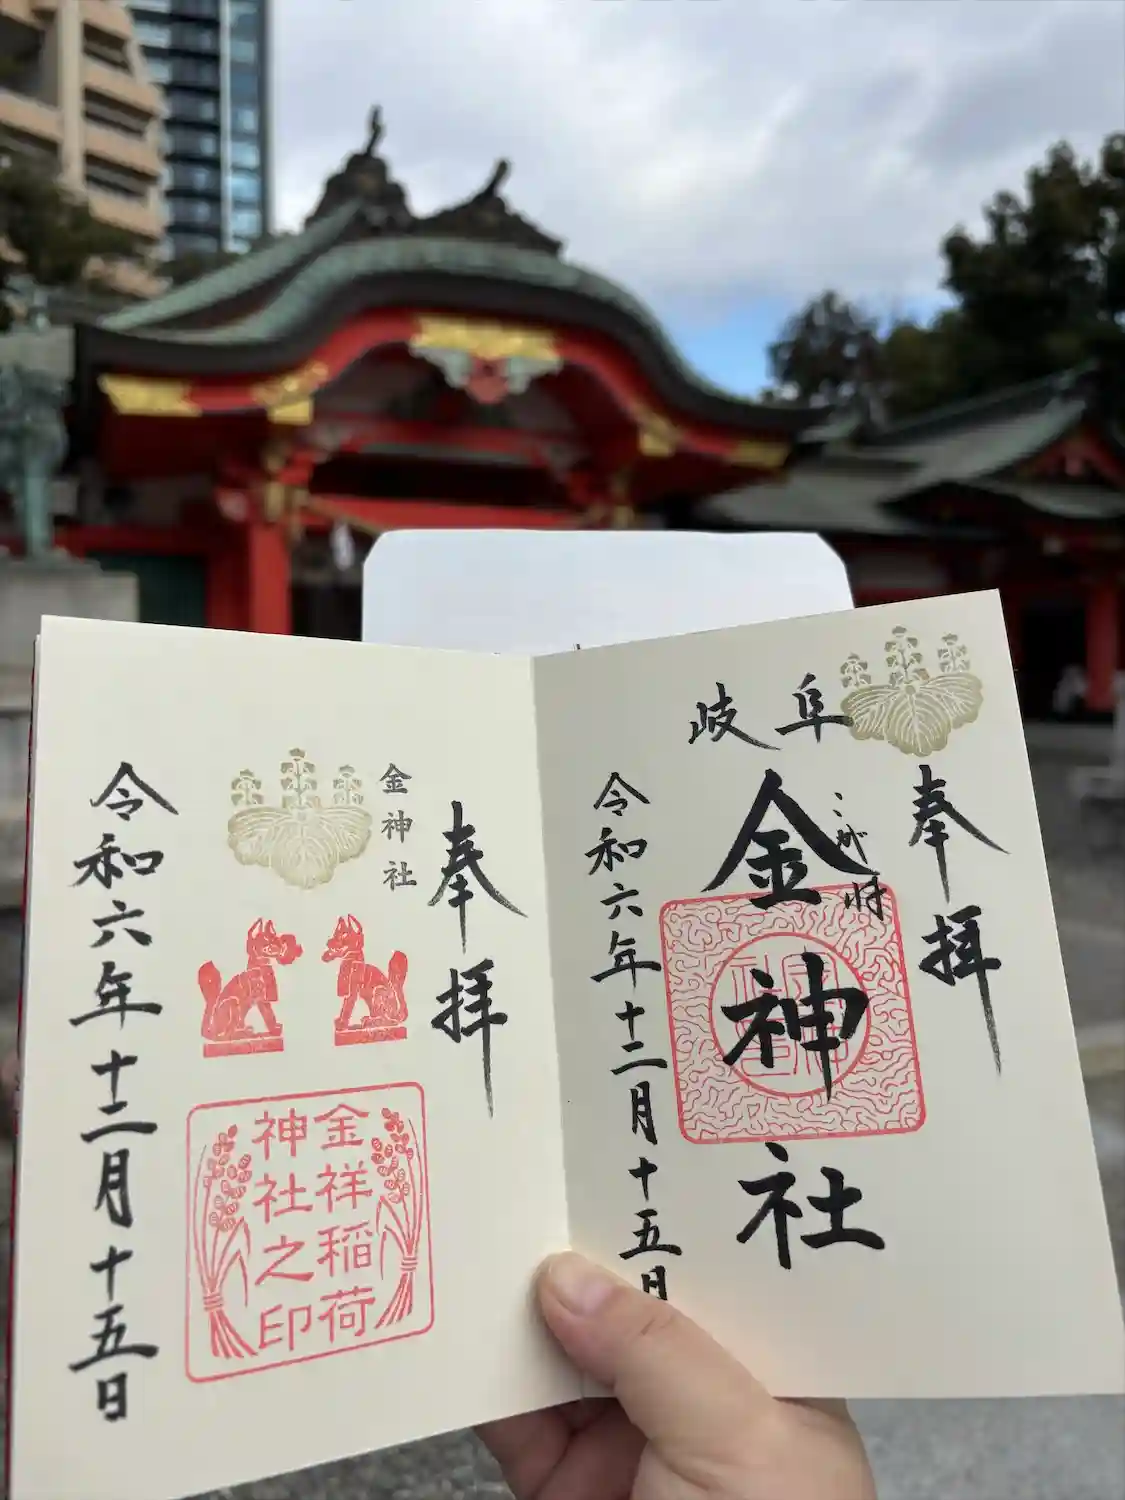 岐阜
奉拝
こがね
金神社
令和六年十二月十五日
奉拝
金神社
金祥稲荷
神社之印
令和六年十二月十五日